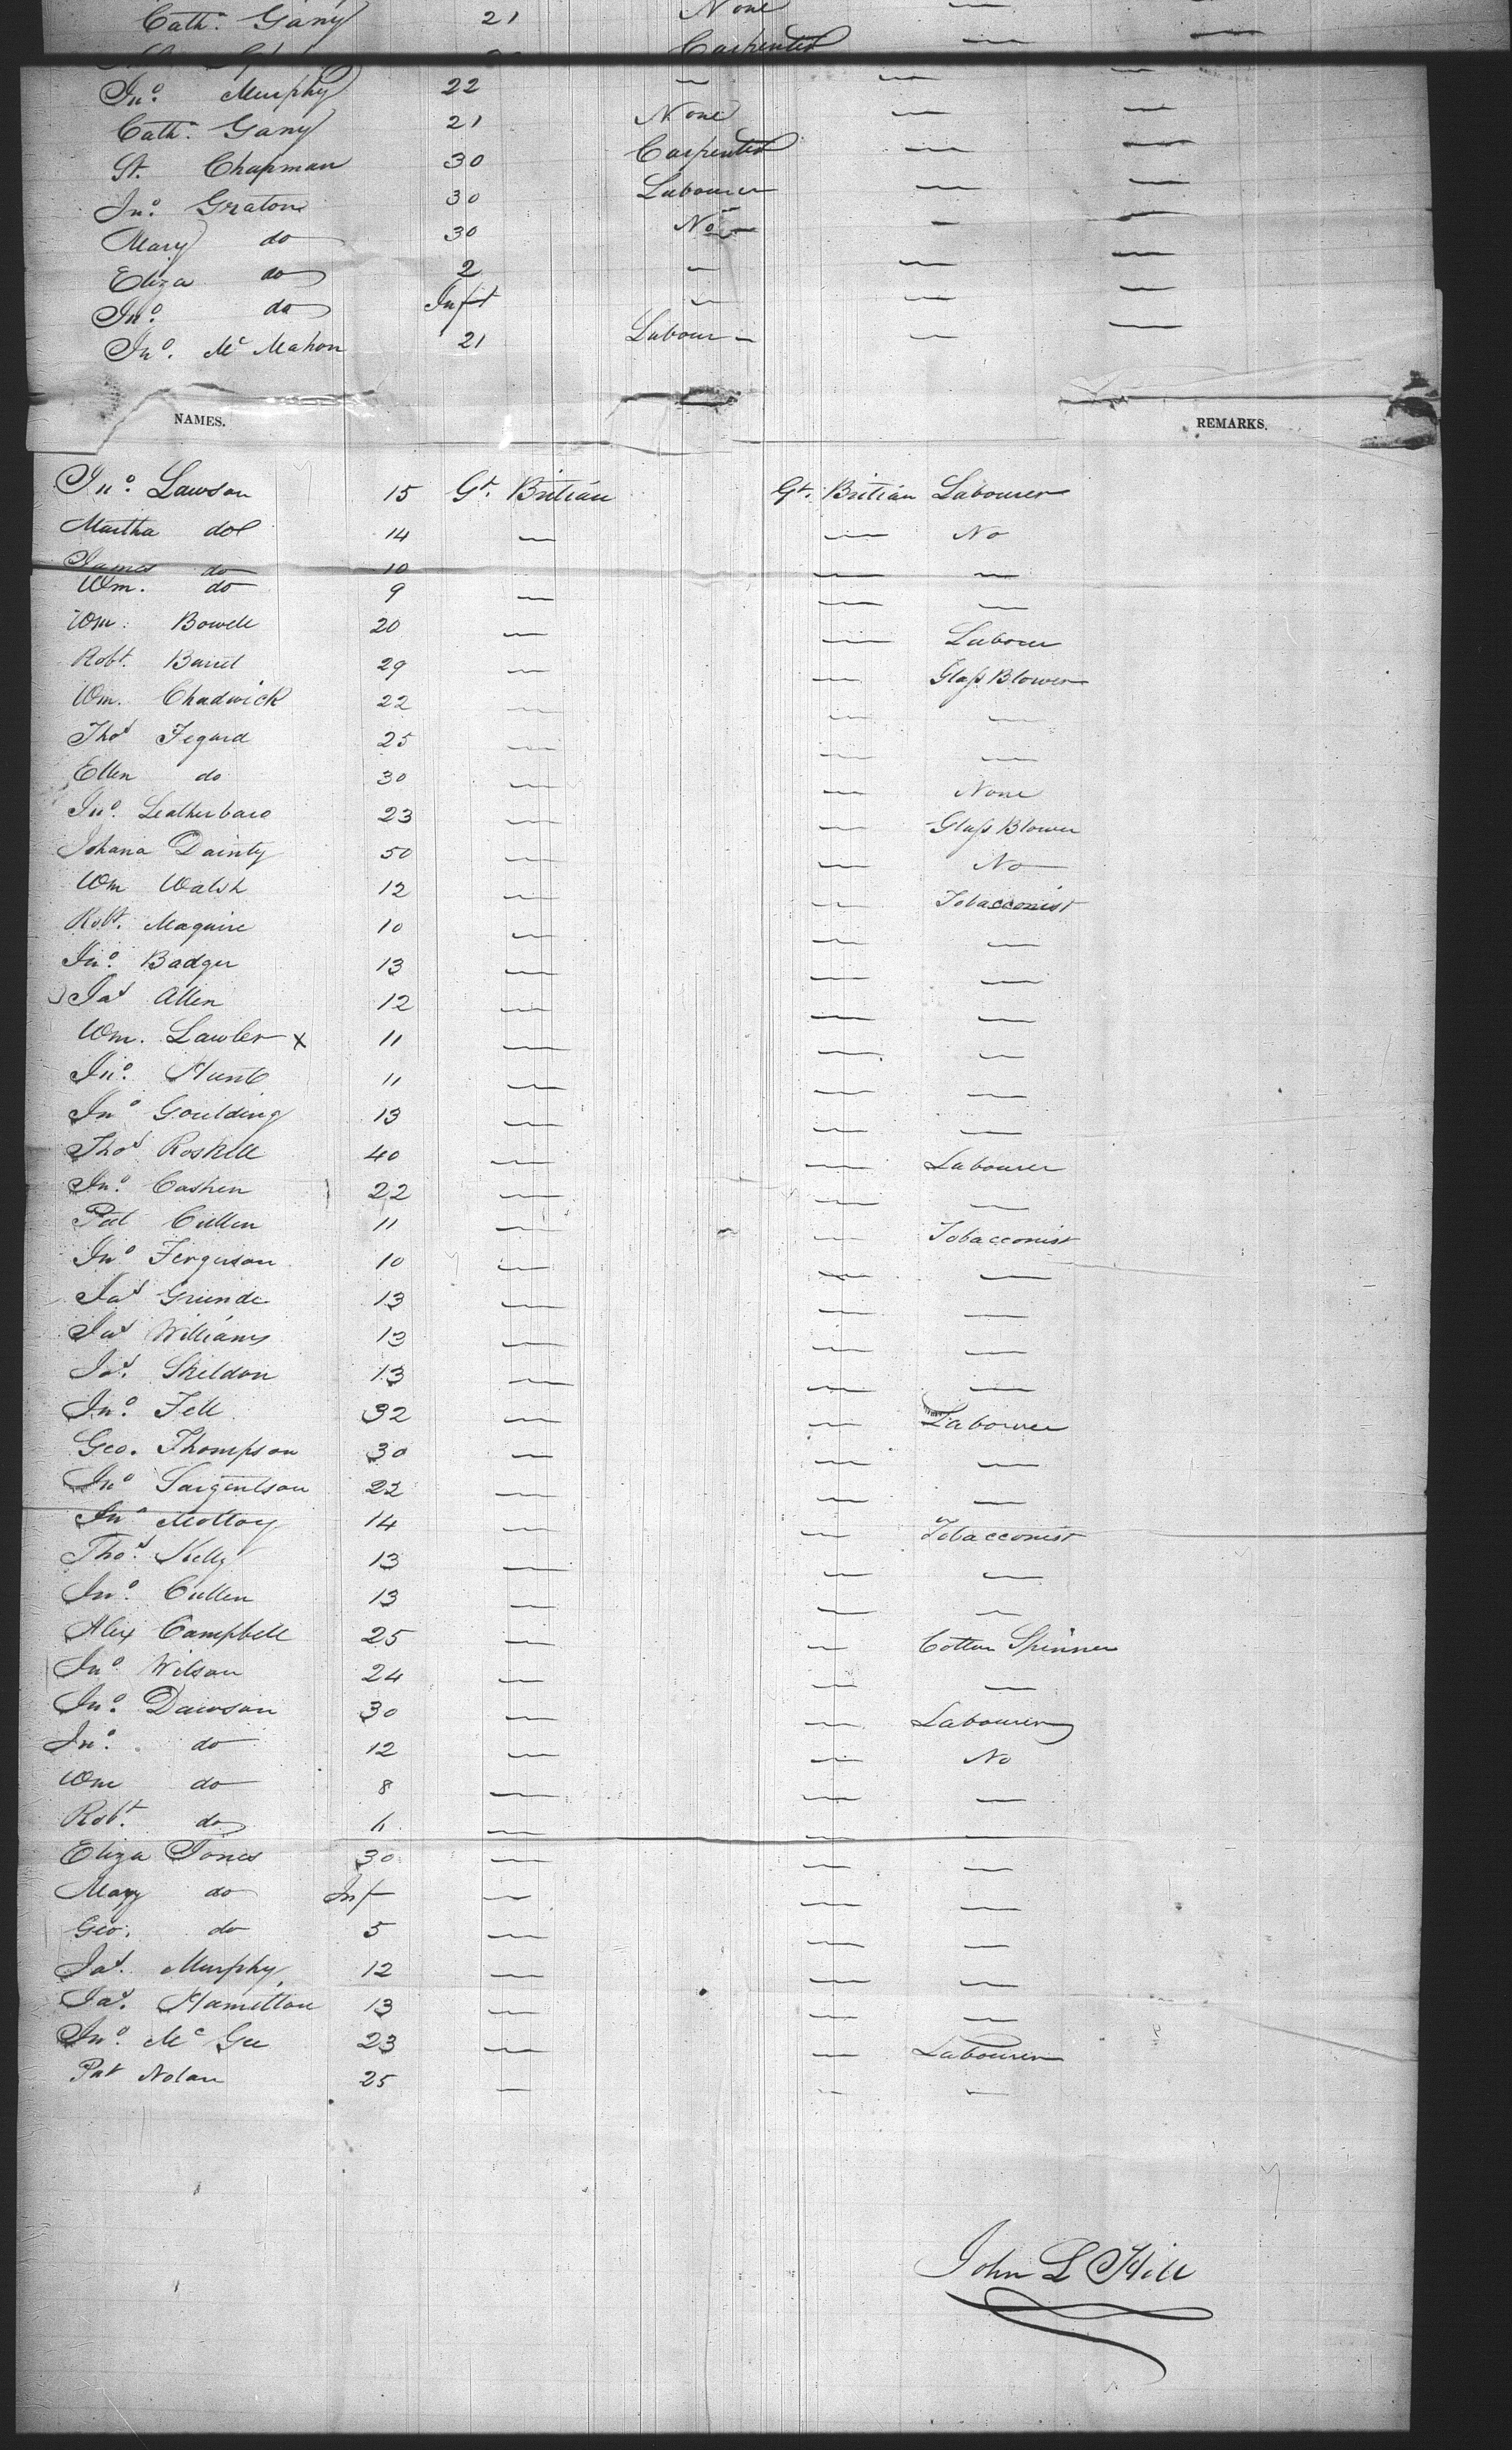 Cath. Gany 21 None — —
Carpenter — —
Jno. Murphy 22 — — —
Cath. Gany 21 None — —
St. Chapman 30 Carpenter — —
Jno. Graton 30 Labourer — —
Mary do 30 No — —
Eliza do 2 — — —
Jno. do Inft — — —
Jno. Mc Mahon 21 Labour — — —
NAMES. REMARKS.
Jno. Lawson 15 Gt. Britian Gt. Britian Labourer
Martha do 14 — — No
James do 10 — —
Wm. do 9 — — —
Wm. Bowell 20 — — Labour
Robt. 29 — — Glass Blower
Wm. Chadwick 22 — — —
Thos Fegard 25 — — —
Ellen do 30 — — None
Jno. Leatherbaro 23 — — Glass Blower
Johana Dainty 50 — — No
Wm Walsh 12 — — Tobacconist
Robt. Maguire 10 — — —
Jno. Badger 13 — — —
Jas Allen 12 — — —
Wm. Lawler x 11 — — —
Jno. Hunt 11 — — —
Jno Goulding 13 — — —
Thos Roskell 40 — — Labourer
Jno. Cashen 22 — — —
Pat Cullen 11 — — Tobacconist
Jno Ferguson 10 — — —
Jas 13 — — —
Jas Williams 13 — — —
Jas. Sheldon 13 — — —
Jno. Fell 32 — — Labourer
Geo. Thompson 30 — — —
Jno Sargentson 22 — — —
Jno Molloy 14 — — Tobacconist
Thos. Kelly 13 — — —
Jno. Cullen 13 — — —
Alex Campbell 25 — — Cotton Spinner
Jno. Wilson 24 — — —
Jno. Dawson 30 — — Labourer
Jno. do 12 — — No
Wm do 8 — — —
Robt. do — — —
Eliza Jones 30 — — —
Mary do Inf — — —
Geo. do 5 — — —
Jas. Murphy 12 — — —
Jas. Hamilton 13 — — —
Jno. Mc Gee 23 — — Labourer
Pat Nolan 25 — — —
John L Hill